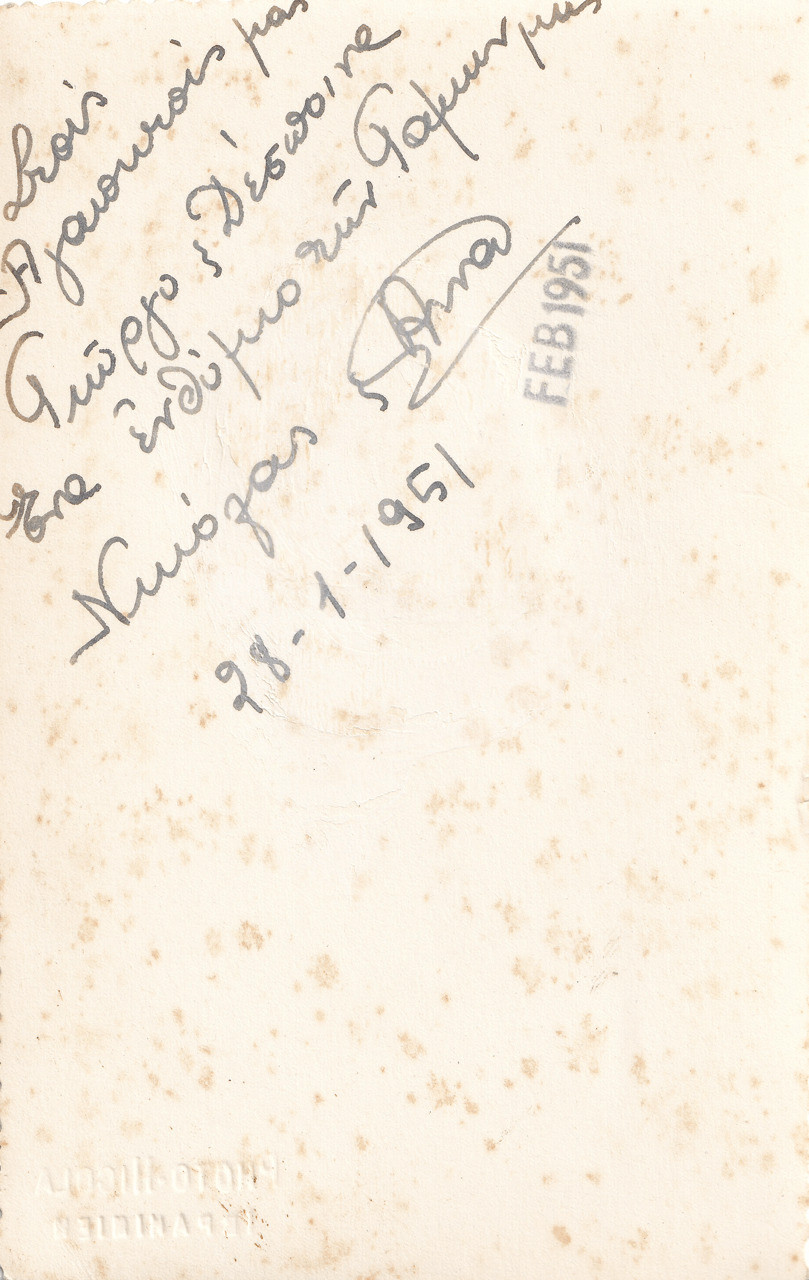 Στούς
Ἀγαπητούς μας
Γιώργο ς Δέσποινα
Ἕνα ἐνθύμιο τῶν Γάμων μας
Νικόλας ς Ἄννα
28-1-1951
FEB 1951
PHOTO-NICOLA